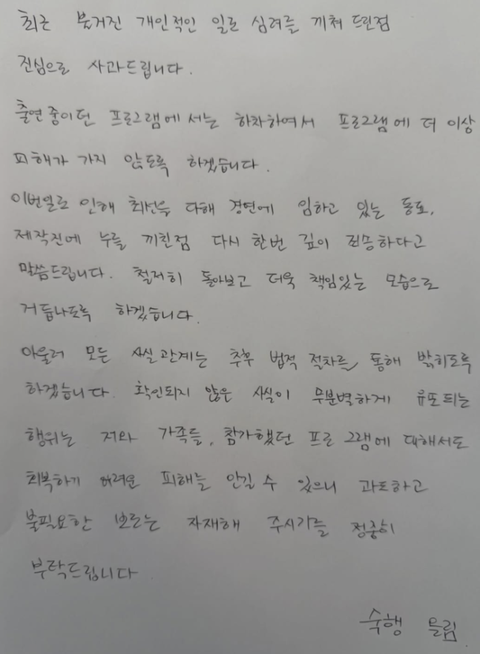 최근 불거진 개인적인 일로 심려를 끼쳐 드린점
진심으로 사과드립니다.
출연중이던 프로그램에서는 하차하여서 프로그램에 더 이상
피해가 가지 않도록 하겠습니다.
이번일로 인해 최선을 다해 경연에 임하고 있는 동료,
제작진에 누를 끼친점 다시 한번 깊이 죄송하다고
말씀드립니다. 철저히 돌아보고 더욱 책임있는 모습으로
거듭나도록 하겠습니다.
아울러 모든 사실관계는 추후 법적 절차를 통해 밝히도록
하겠습니다. 확인되지 않은 사실이 무분별하게 유포되는
행위는 저와 가족들, 참가했던 프로그램에 대해서도
회복하기 어려운 피해를 안길 수 있으니 과도하고
불필요한 보도는 자재해 주시기를 정중히
부탁드립니다
숙행 올림